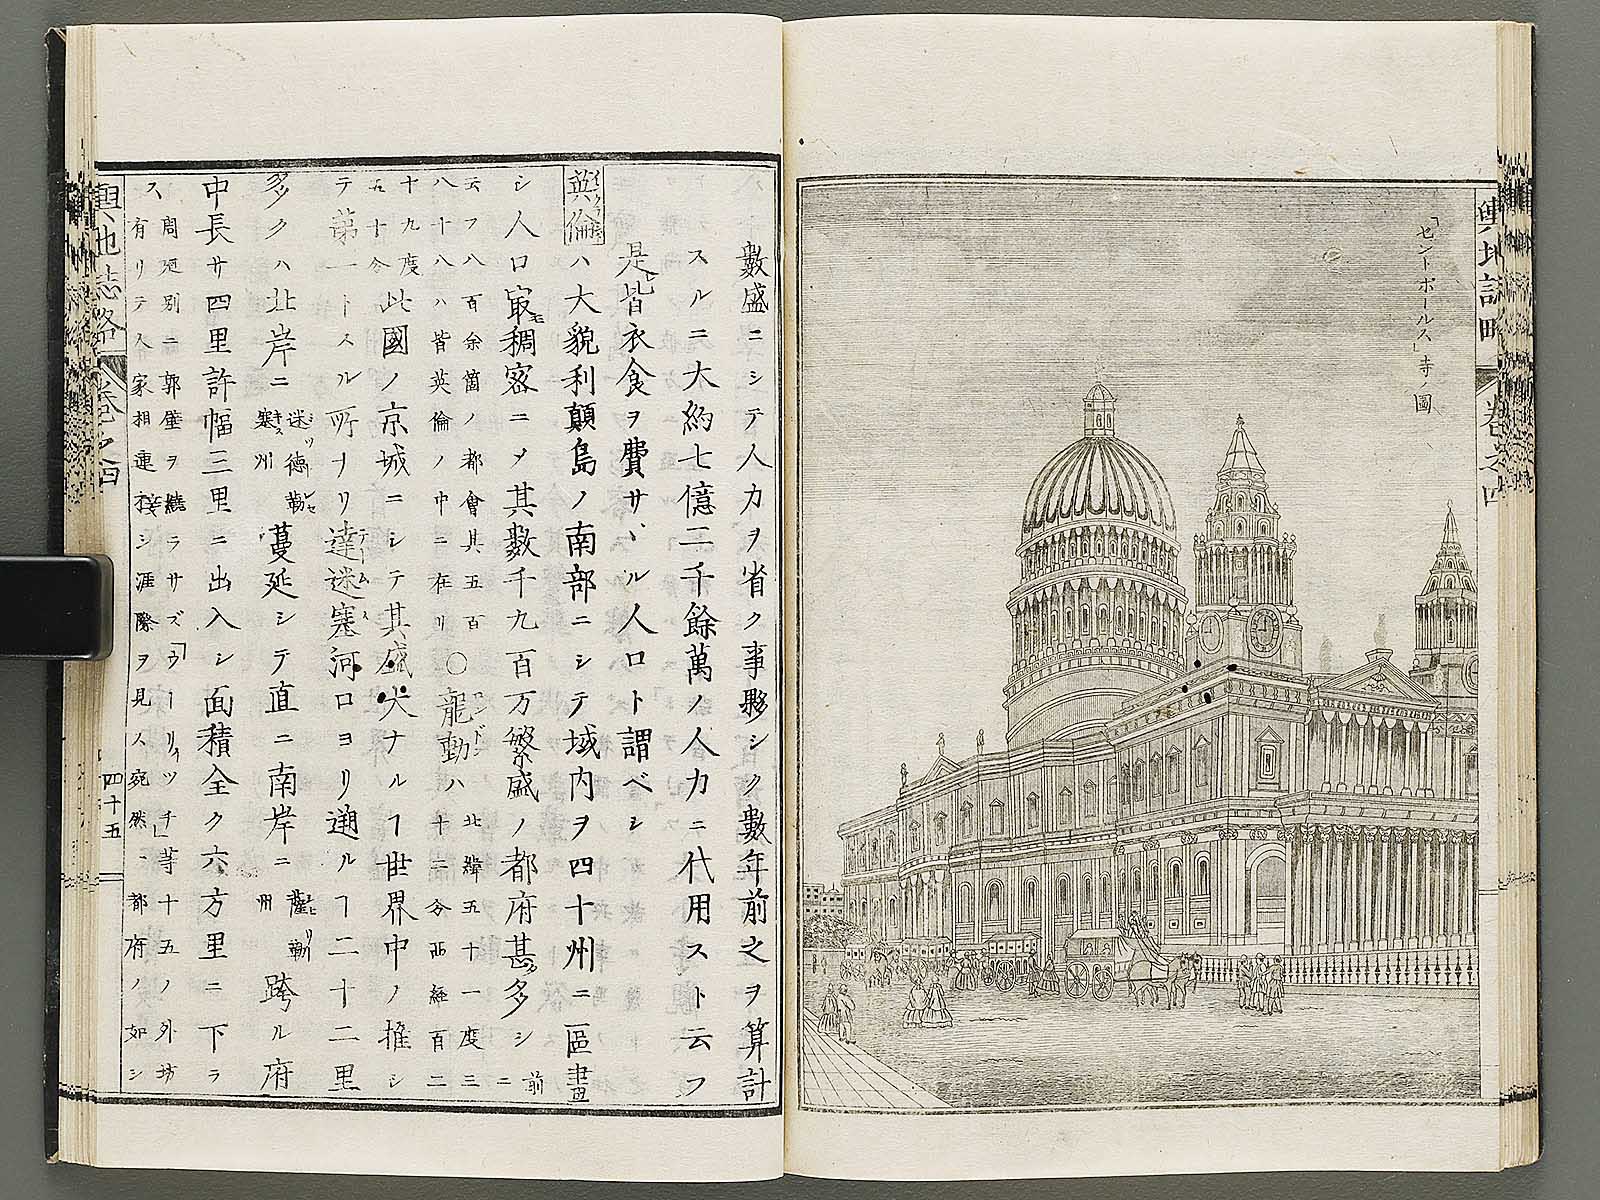 輿地誌略
卷之四
「セントポールス」寺ノ圖
數盛ニシテ人力ヲ省ク事夥シク數年前之ヲ算計
スルニ大約七億二千餘萬ノ人力ニ代用スト云フ
是レ皆衣食ヲ費サヽル人口ト謂ベシ
英倫ハ大貌利顛島ノ南部ニシテ域内ヲ四十州ニ區畫
シ人口最モ稠密ニメ其數千九百万繁盛ノ都府甚タ多シ前ニ
云フ八百余箇ノ都會其五百
八十八ハ皆英倫ノ中ニ在リ
○龍動ハ
ロンドン
北緯五十一度三
十二分西經百二
十九度
五十分
此國ノ京城ニシテ其盛大ナルヿ世界中ノ推シ
テ第一トスル所ナリ達迷塞河口ヨリ遡ルヿ二十二里
テームス
多クハ北岸ニ
迷德勒
塞州
蔓延シテ直ニ南岸ニ
薩勒
州
跨ル府
中長サ四里許幅三里ニ出入シ面積全ク六方里ニ下ラ
ス
周廻別ニ郭壁ヲ繞ラサズ「ウーリィツチ」等十五ノ外坊
有リテ人家相連接シ涯際ヲ見ス宛然一都府ノ如シ
輿地誌略
卷之四
四十五